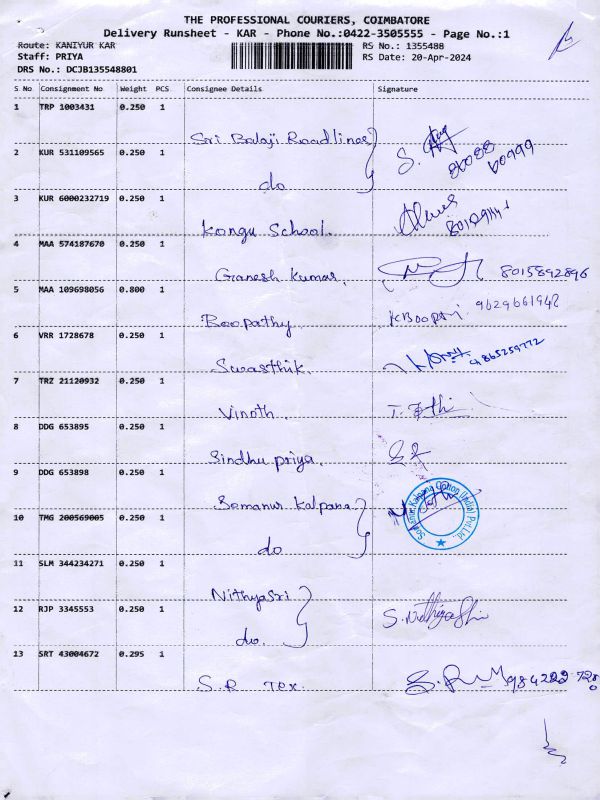 THE PROFESSIONAL COURIERS, COIMBATORE
Delivery Runsheet - KAR - Phone No.:0422-3505555 - Page No.:1
Route: KANIYUR KAR RS No.: 1355488
Staff: PRIYA RS Date: 20-Apr-2024
DRS No.: DCJB135548801
S No Consignment No Weight PCS Consignee Details Signature
1 TRP 1003431 0.250 1
Sri Balaji Roadlines
2 KUR 531109565 0.250 1
do
3 KUR 6000232719 0.250 1
Kongu School.
4 MAA 574187670 0.250 1
Ganesh Kumar. 8015892896
5 MAA 109698056 0.800 1
Boopathy K Boopathi 9629661942
6 VRR 1728678 0.250 1
Swasthik. 9865259772
7 TRZ 21120932 0.250 1
Vinoth.
8 DDG 653895 0.250 1
Sindhu priya.
9 DDG 653898 0.250 1
Somanur Kalpana
10 TMG 200569005 0.250 1
do
11 SLM 344234271 0.250 1
Nithyasri
12 RJP 3345553 0.250 1
do. S. Nithyashi
13 SRT 43004672 0.295 1
S.R Tex.